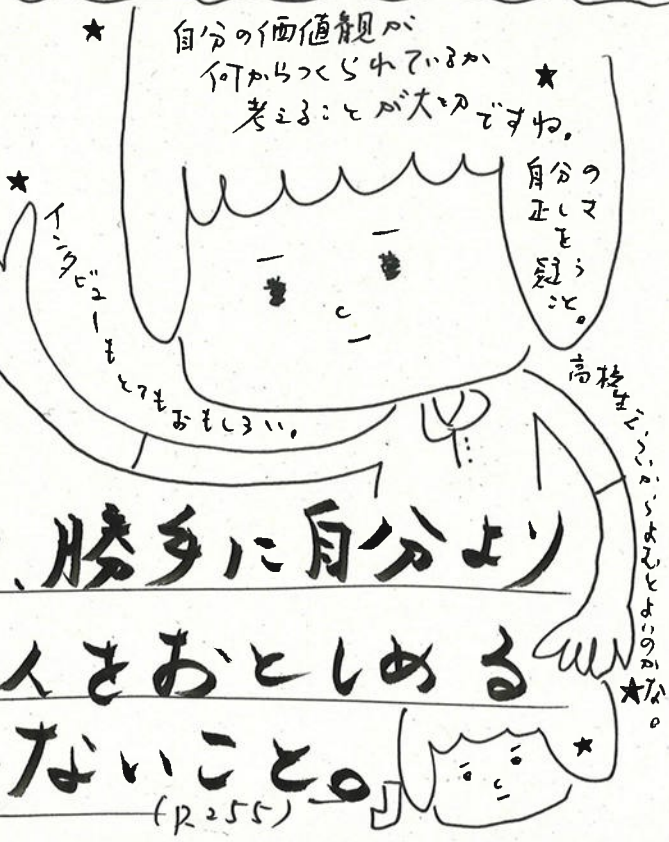 自分の価値観が
何からつくられているか
考えることが大切ですね。
自分の
正しさ
を
疑う
こと。
インタビューもとてもおもしろい。
高校生ぐらいからよむとよいのかな。
、勝手に自分より
人をおとしめる
ないこと。
(P.255)